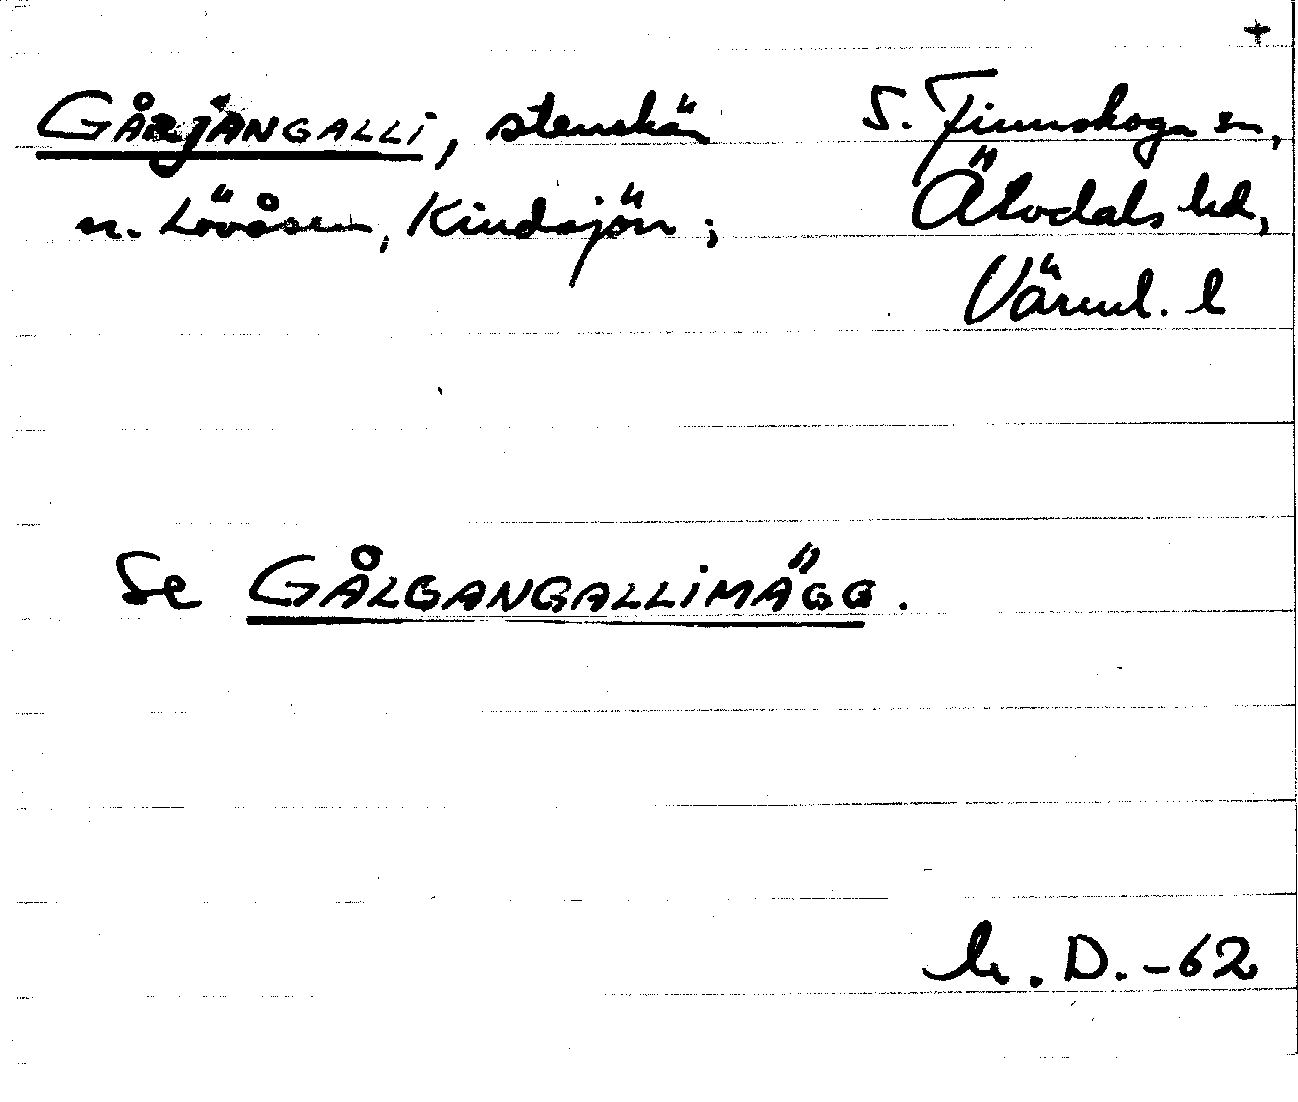 +
GÅRJANGALLI, stenskär S. Finnskoga sn,
n. Lövåsen, Kindsjön; Älvdals hd,
Värml. l
Se GÅLGANGALLIMÄGG.
D. -62